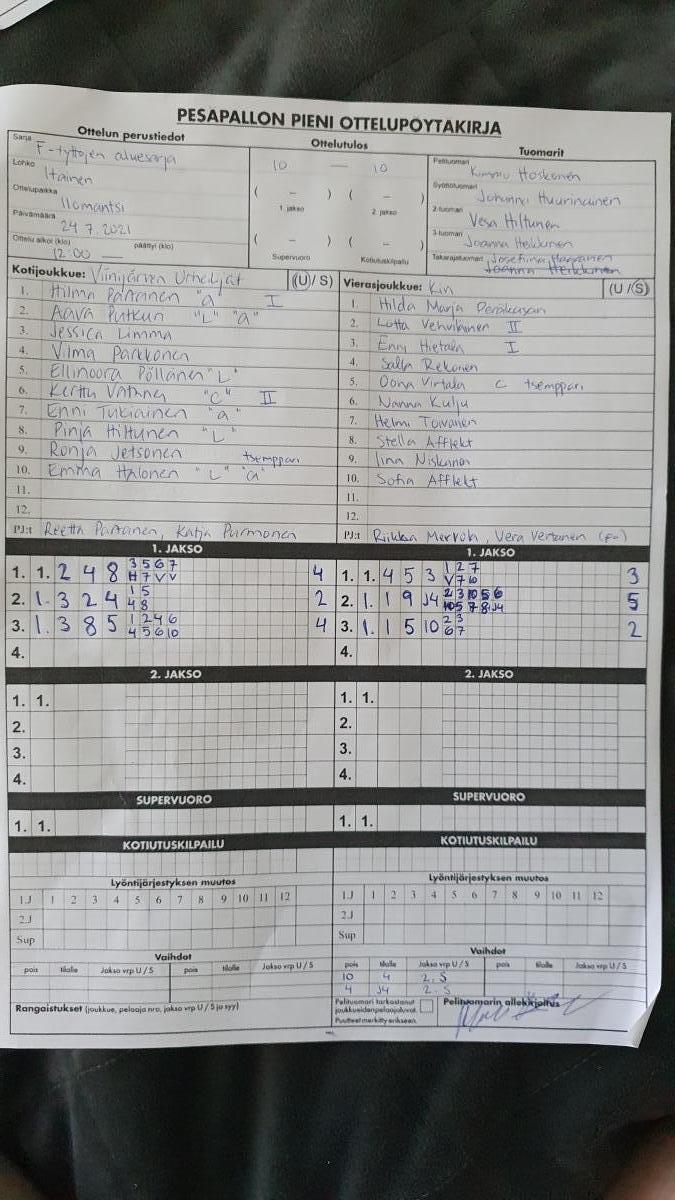 PESÄPALLON PIENI OTTELUPÖYTÄKIRJA
Ottelun perustiedot
Ottelutulos
Tuomarit
Sarja F-tyttöjen aluesarja
Lohko Itäinen
Ottelupaikka Ilomantsi
Päivämäärä 24.7.2021
Ottelu alkoi (klo) päättyi (klo)
12:00 —
10 — 10
( – ) ( – )
1. jakso 2. jakso
( – ) ( – )
Supervuoro Kotiutuskilpailu
Pelituomari Kimmo Hoskonen
Syöttötuomari Johanna Huurinainen
2-tuomari Vesa Hiltunen
3-tuomari Joanna Heikkinen
Takarajatuomari Josefiina
Joanna Heikkinen
Kotijoukkue: Viinijärven Urheilijat (U / S)
1. Hilma Partanen "a" I
2. Aava Putkun "L" "a"
3. Jessica Limma
4. Vilma Parkkonen
5. Ellinoora Pöllänen "L"
6. Kerttu "C" II
7. Enni Tukiainen "a"
8. Pinja Hiltunen "L"
9. Ronja Jetsonen tsemppari
10. Emma Halonen "L" "a"
11.
12.
PJ:t Reetta Partanen, Katja Purmonen
Vierasjoukkue: (U / S)
1. Hilda Marja
2. Lotta Vehviläinen II
3. Enni Hietala I
4. Salla Rekonen
5. Oona Virtala C tsemppari
6. Nanna Kulju
7. Helmi Toivanen
8. Stella Afflekt
9. Iina Niskanen
10. Sofia Afflekt
11.
12.
PJ:t Riikka Vera Vertanen
1. JAKSO
1. 1. 2 4 8 3 5 6 7 4
H 7 V V
2. 1. 3 2 4 1 5 2
4 8
3. 1. 3 8 5 1 2 4 6 4
4 5 6 10
4.
1. JAKSO
1. 1. 4 5 3 1 2 7 3
V 7 10
2. 1. 1 9 J4 2 3 10 5 6 5
10 5 7 8 J4
3. 1. 1 5 10 2 3 2
6 7
4.
2. JAKSO
1. 1.
2.
3.
4.
2. JAKSO
1. 1.
2.
3.
4.
SUPERVUORO
1. 1.
SUPERVUORO
1. 1.
KOTIUTUSKILPAILU
KOTIUTUSKILPAILU
Lyöntijärjestyksen muutos
1.J 1 2 3 4 5 6 7 8 9 10 11 12
2.J
Sup
Lyöntijärjestyksen muutos
1.J 1 2 3 4 5 6 7 8 9 10 11 12
2.J
Sup
Vaihdot
pois tilalle Jakso vrp U / S pois tilalle Jakso vrp U / S
Vaihdot
pois tilalle Jakso vrp U / S pois tilalle Jakso vrp U / S
10 4 2. S
4 J4 2. S
Rangaistukset (joukkue, pelaaja nro, jakso vrp U / S ja syy)
Pelituomari tarkastanut
joukkueiden pelaajaluvat.
Puutteet merkitty erikseen.
Pelituomarin allekirjoitus